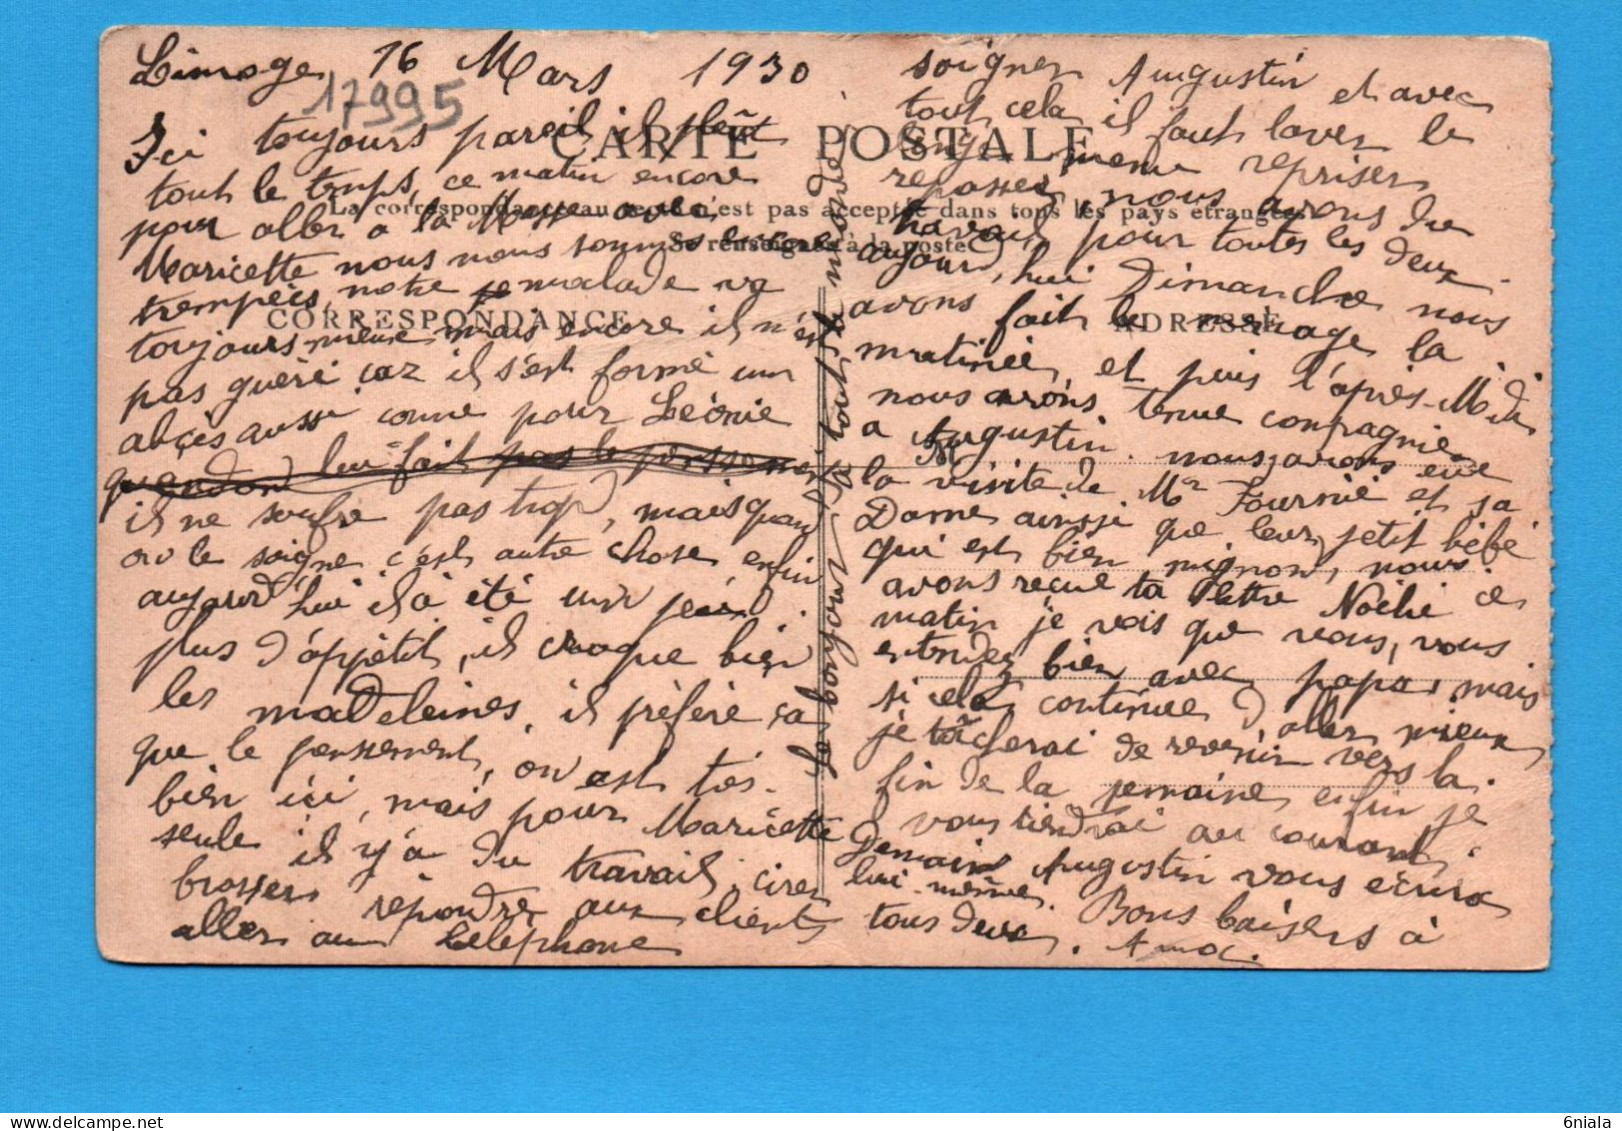 Limoge, 16 Mars 1930
17995
CARTE POSTALE
La correspondance au recto n'est pas acceptée dans tous les pays étrangers
Se renseigner à la poste
CORRESPONDANCE
ADRESSE
Ici toujours pareil, il pleût
tout le temps, ce matin encore
pour aller a la Messe avec
Maricette nous nous sommes encore
trempées, notre malade va
toujours mieux mais encore il n'est
pas guèri caz il s'est formé un
abçès aussi comme pour Léonie
quendon lui fait pas le penssement
il ne soufre pas trop, mais quand
on le soigne c'est autre chose, enfin
aujourd'hui il à été un peu
plus d'áppétit, il croque bien
les madeleines, il préfére ça
que le penssement, on est très
bien ici, mais pour Maricette
seule il y'a du travail, cirer
brosser rèpondre aux clients
aller au tèlèphone
soigner Augustin et avec
tout cela il faut laver le
linge, meme repriser
repasser, nous avons du
travail pour toutes les deux
aujourd,hui Dimanche nous
avons fait le menage la
matinée, et puis l'après-Midi
nous avons tenue compagnie
a Augustin. nous avons eue
la visite de Mr Fournié et sa
Dame ainssi que leur petit bébé
qui est bien mignon, nous
avons reçue ta lettre Noélie ce
matin je vois que vous, vous
entendez bien avec papa, mais
si cela continue d'aller mieux
je tâcherai de revenir vers la
fin de la semaine, enfin je
vous tiendrai au courant.
Demain Augustin vous ecrira
lui-même. Bons baisers à
tous deux.
le bonjour à tout le monde
6niala